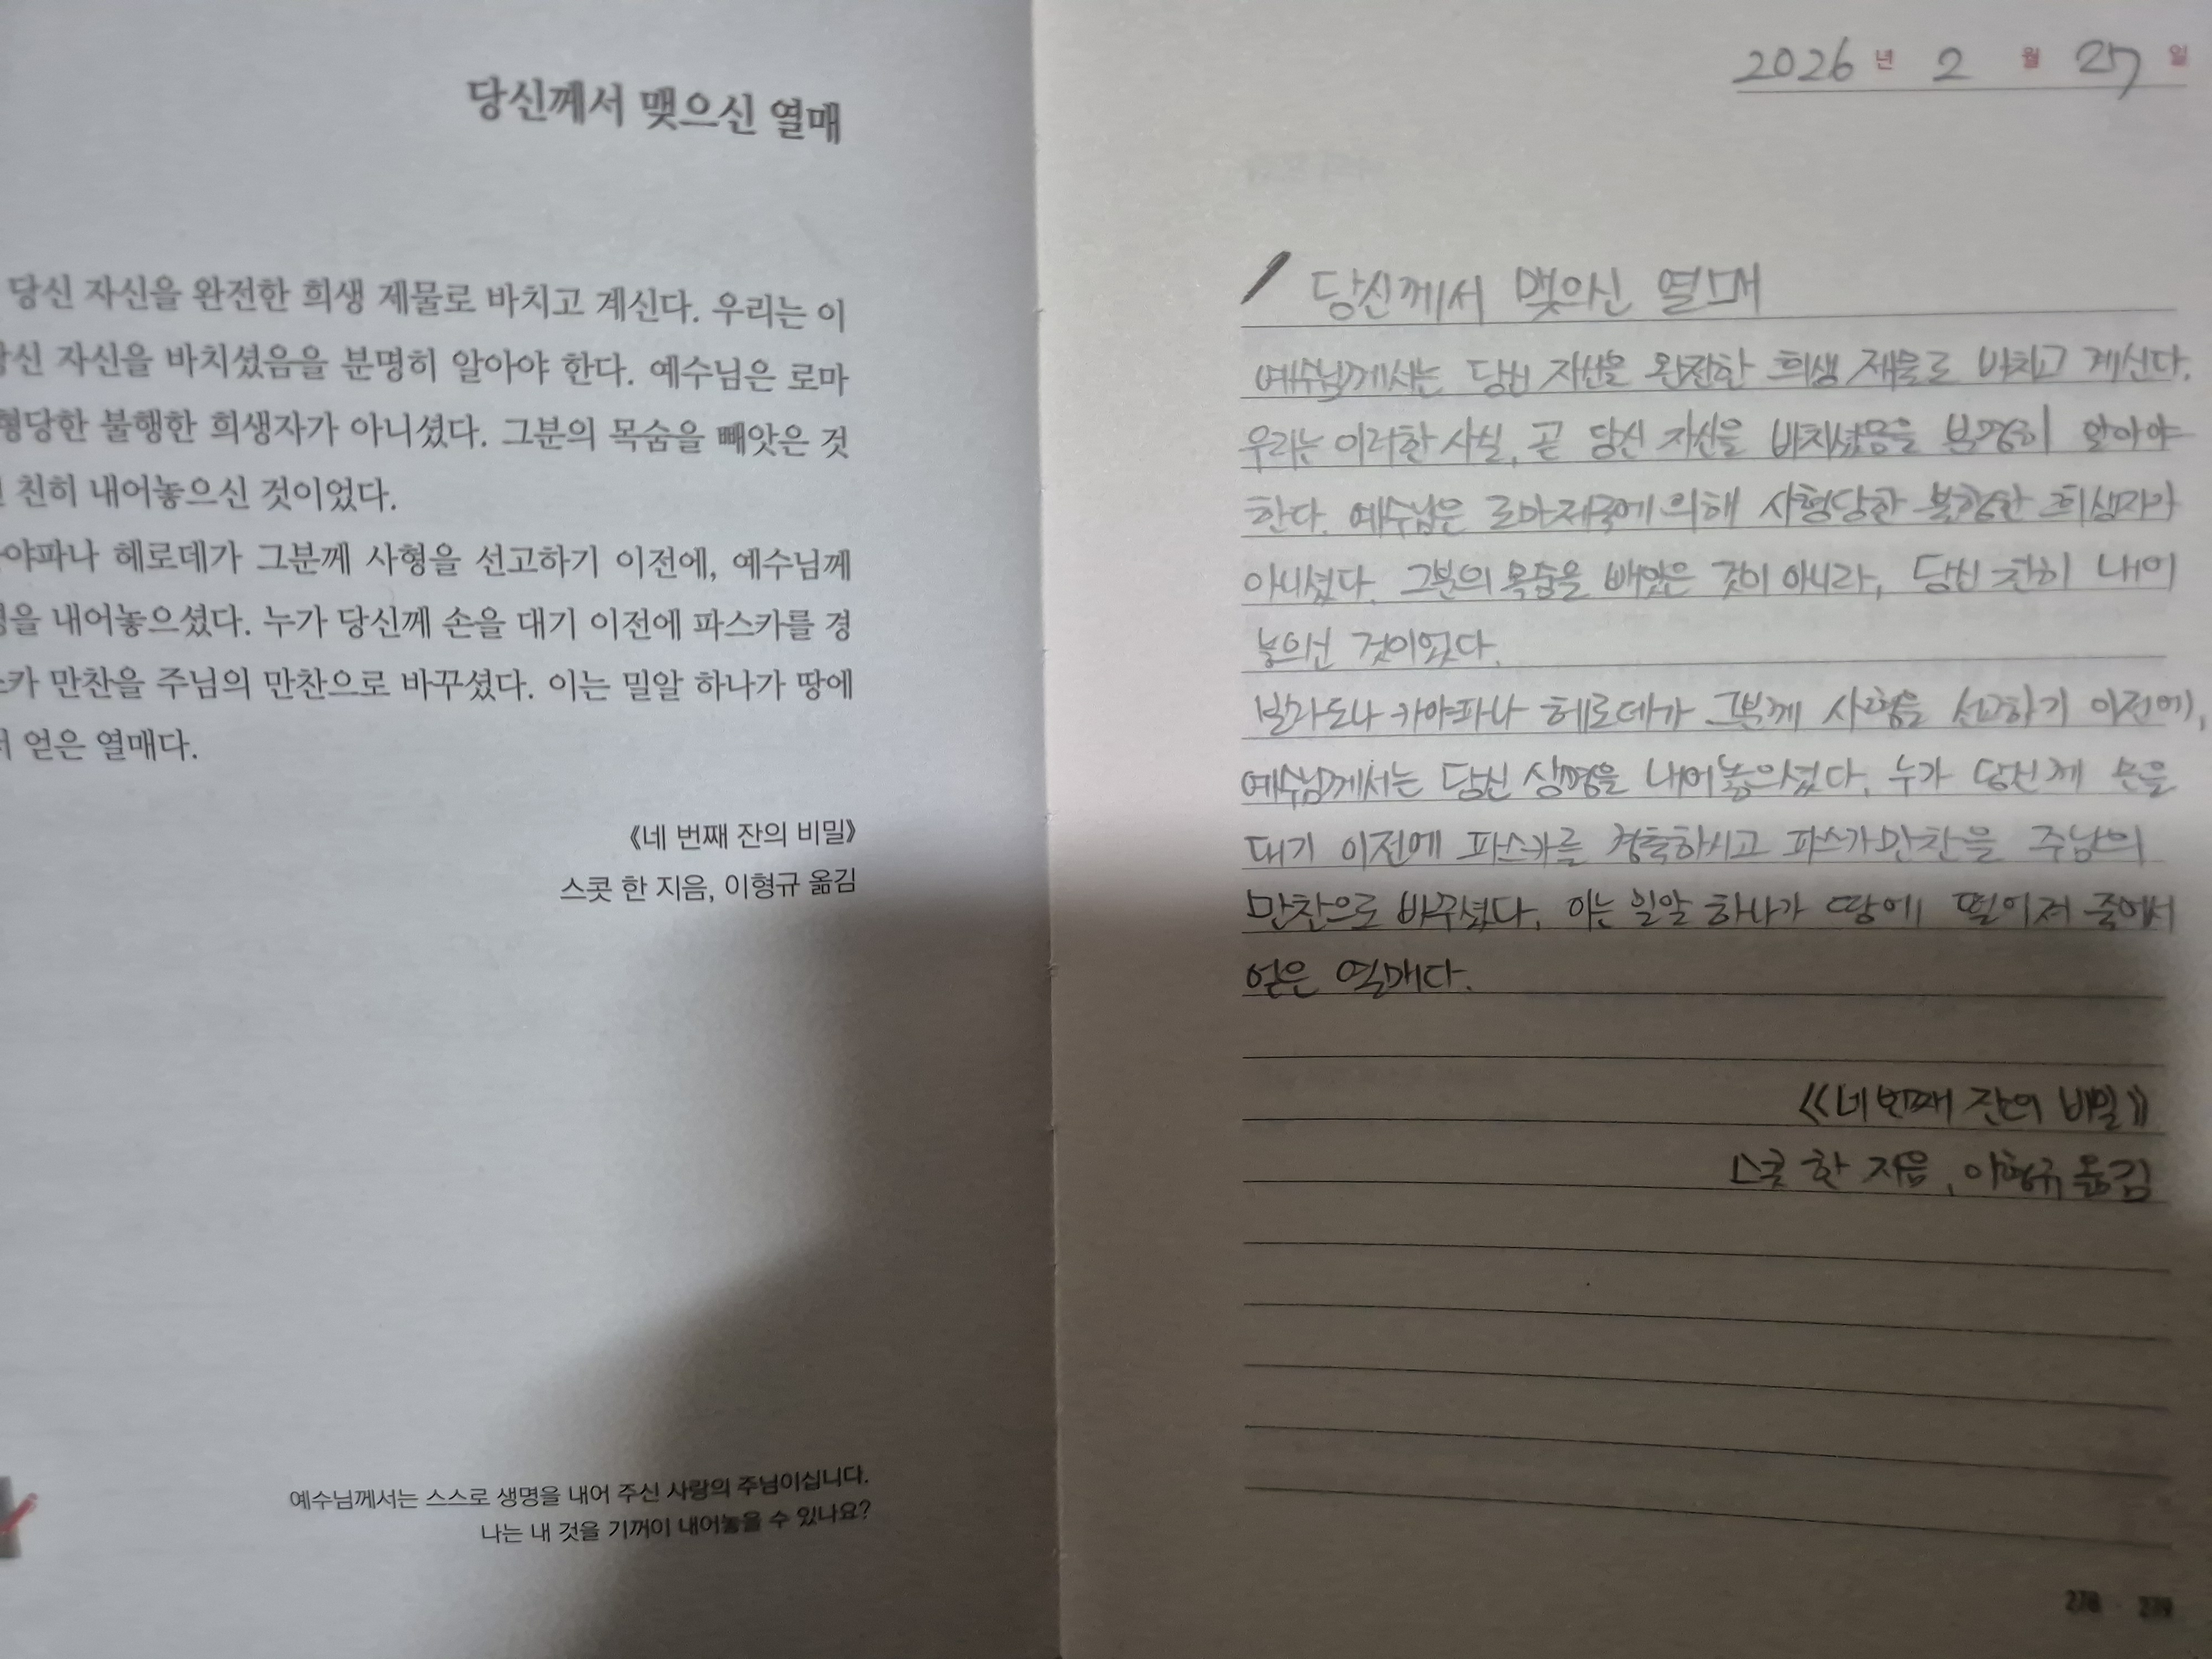 당신께서 맺으신 열매
당신 자신을 완전한 희생 제물로 바치고 계신다. 우리는 이
당신 자신을 바치셨음을 분명히 알아야 한다. 예수님은 로마
형당한 불행한 희생자가 아니셨다. 그분의 목숨을 빼앗은 것
친히 내어놓으신 것이었다.
야파나 헤로데가 그분께 사형을 선고하기 이전에, 예수님께
을 내어놓으셨다. 누가 당신께 손을 대기 이전에 파스카를 경
카 만찬을 주님의 만찬으로 바꾸셨다. 이는 밀알 하나가 땅에
얻은 열매다.
《네 번째 잔의 비밀》
스콧 한 지음, 이형규 옮김
예수님께서는 스스로 생명을 내어 주신 사랑의 주님이십니다.
나는 내 것을 기꺼이 내어놓을 수 있나요?
2026 년 2 월 27 일
당신께서 맺으신 열매
예수님께서는 당신 자신을 완전한 희생 제물로 바치고 계신다.
우리는 이러한 사실, 곧 당신 자신을 바치셨음을 분명히 알아야
한다. 예수님은 로마제국에 의해 사형당한 불행한 희생자가
아니셨다. 그분의 목숨을 빼앗은 것이 아니라, 당신 친히 내어
놓으신 것이었다.
빌라도나 카야파나 헤로데가 그분께 사형을 선고하기 이전에,
예수님께서는 당신 생명을 내어놓으셨다. 누가 당신께 손을
대기 이전에 파스카를 경축하시고 파스카만찬을 주님의
만찬으로 바꾸셨다. 이는 밀알 하나가 땅에 떨어져 죽어서
얻은 열매다.
《네 번째 잔의 비밀》
스콧 한 지음, 이형규 옮김
278 · 279